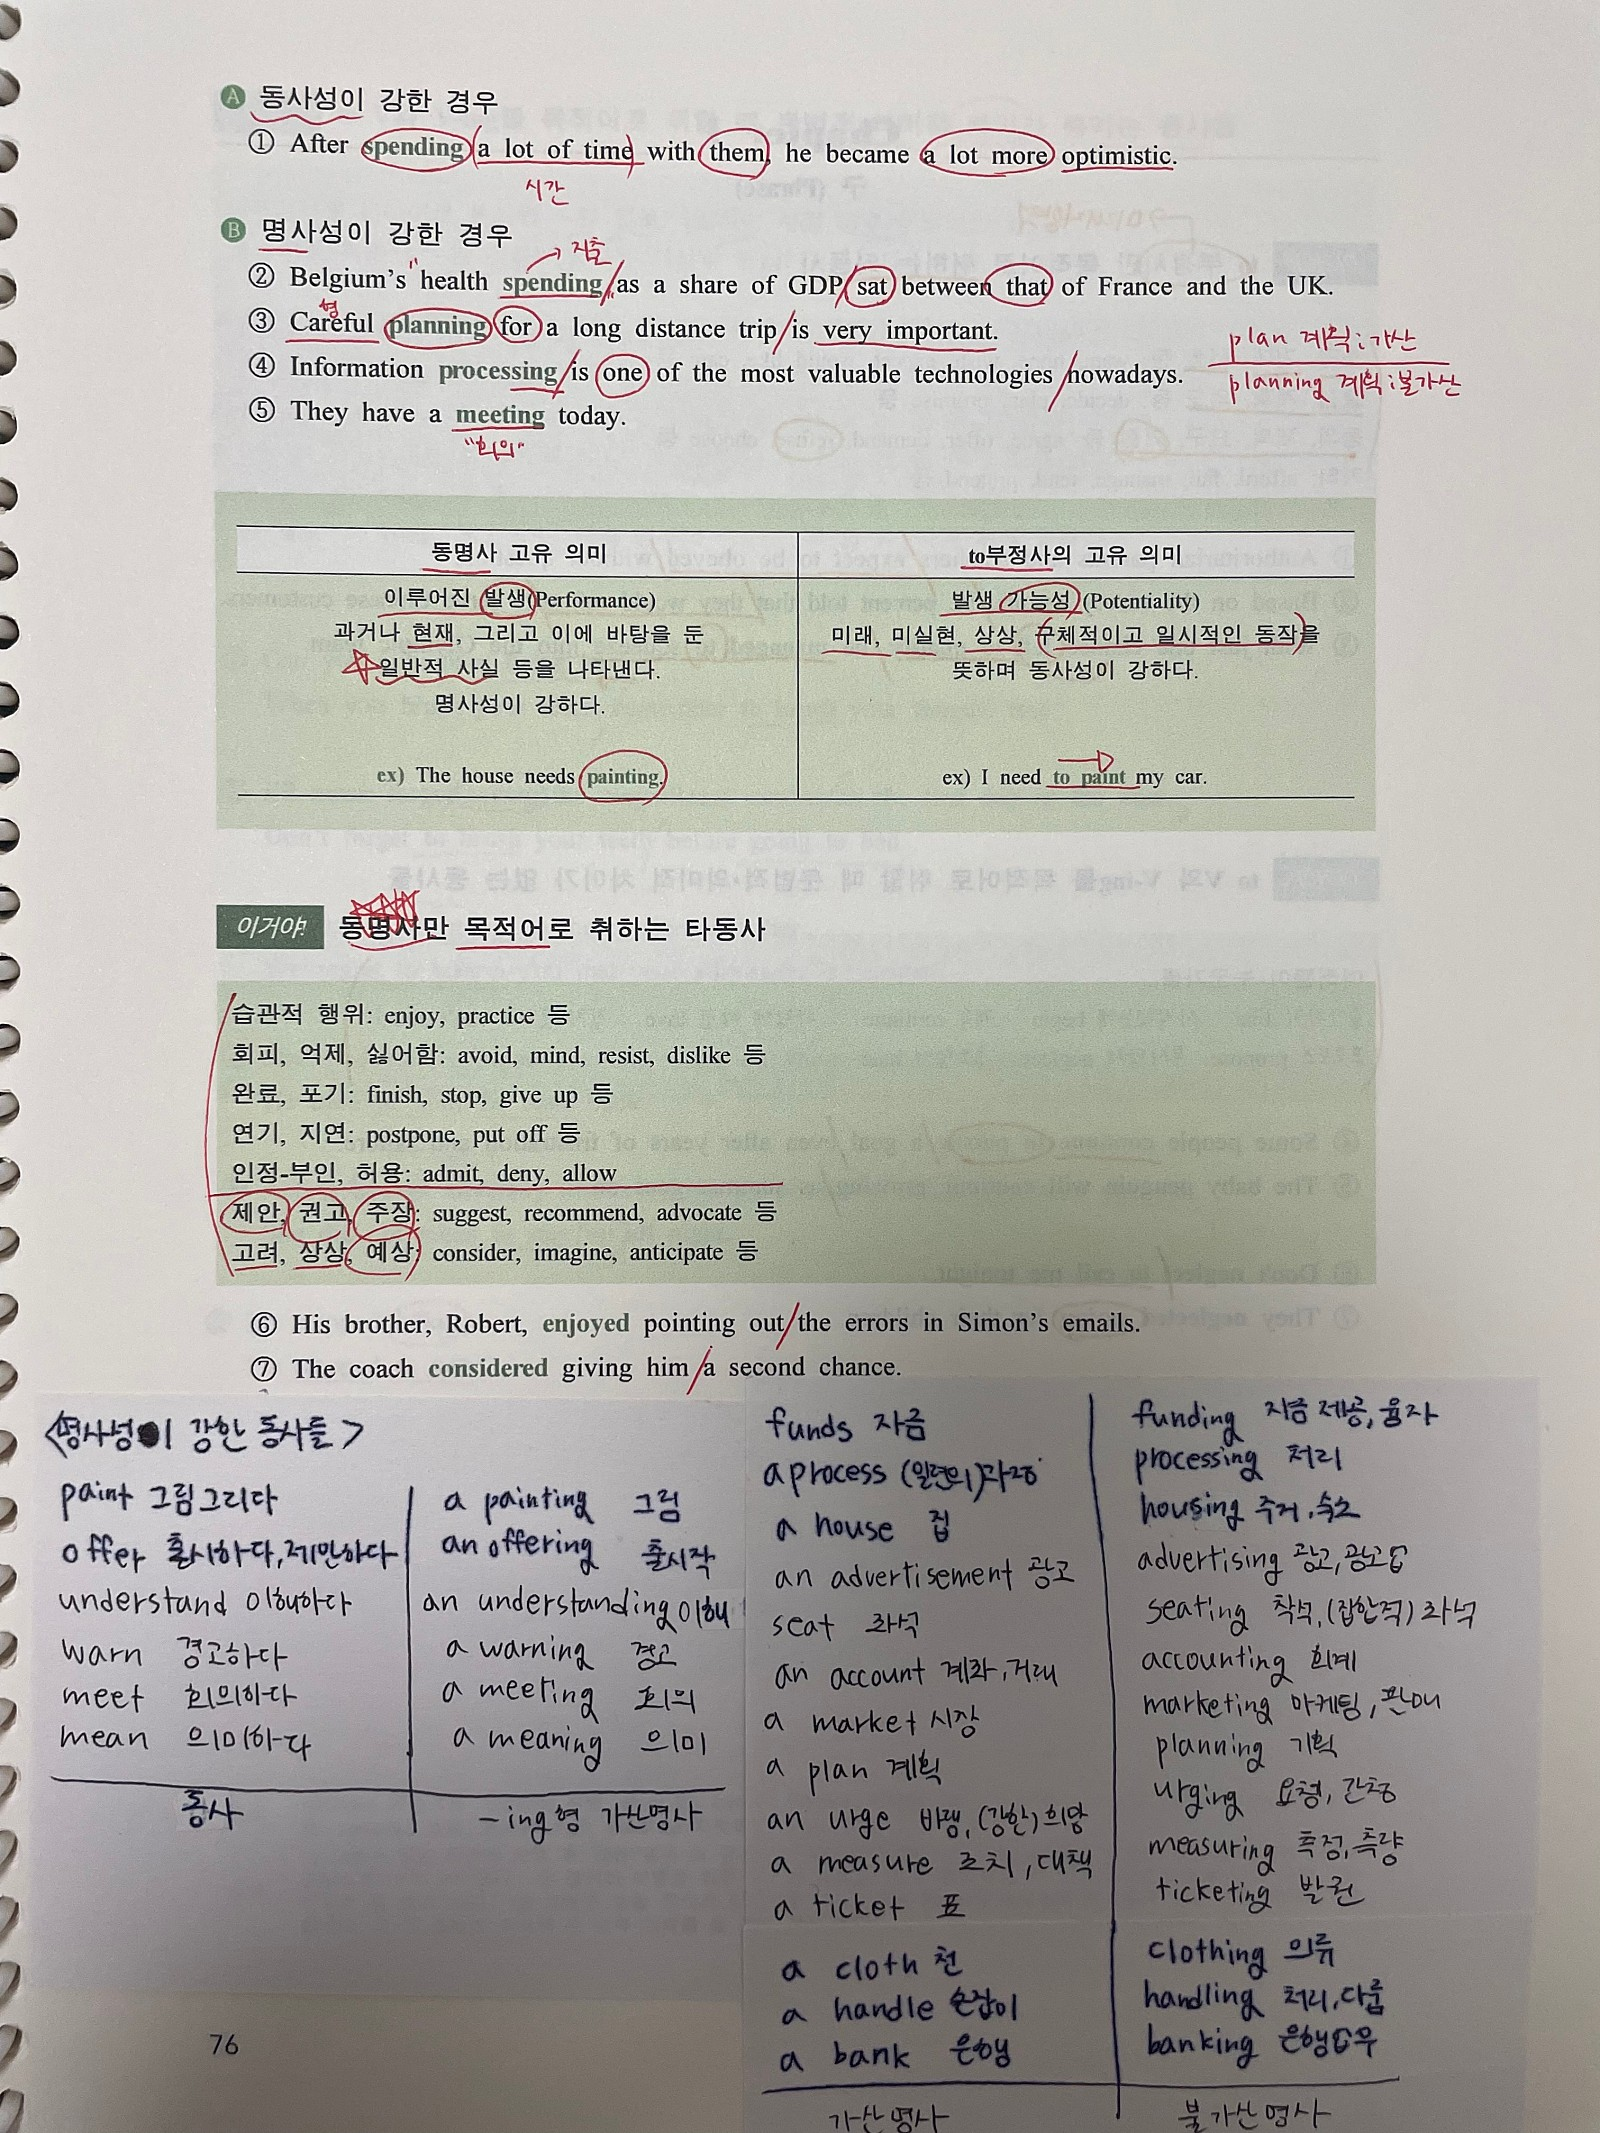 A 동사성이 강한 경우
① After spending a lot of time with them, he became a lot more optimistic.
시간
B 명사성이 강한 경우
지출
② Belgium's health spending as a share of GDP sat between that of France and the UK.
형
③ Careful planning for a long distance trip is very important.
plan 계획:가산
④ Information processing is one of the most valuable technologies nowadays.
planning 계획:불가산
⑤ They have a meeting today.
"회의"
동명사 고유 의미
to부정사의 고유 의미
이루어진 발생(Performance)
과거나 현재, 그리고 이에 바탕을 둔
일반적 사실 등을 나타낸다.
명사성이 강하다.
ex) The house needs painting.
발생 가능성(Potentiality)
미래, 미실현, 상상, 구체적이고 일시적인 동작을
뜻하며 동사성이 강하다.
ex) I need to paint my car.
이거야! 동명사만 목적어로 취하는 타동사
습관적 행위: enjoy, practice 등
회피, 억제, 싫어함: avoid, mind, resist, dislike 등
완료, 포기: finish, stop, give up 등
연기, 지연: postpone, put off 등
인정-부인, 허용: admit, deny, allow
제안, 권고, 주장: suggest, recommend, advocate 등
고려, 상상, 예상: consider, imagine, anticipate 등
⑥ His brother, Robert, enjoyed pointing out the errors in Simon's emails.
⑦ The coach considered giving him a second chance.
<명사성이 강한 동사들>
paint 그림그리다 a painting 그림
offer 출시하다, 제안하다 an offering 출시작
understand 이해하다 an understanding 이해
warn 경고하다 a warning 경고
meet 회의하다 a meeting 회의
mean 의미하다 a meaning 의미
동사 -ing형 가산명사
funds 자금 funding 자금 제공, 융자
a process (일련의)과정 processing 처리
a house 집 housing 주거, 숙소
an advertisement 광고 advertising 광고, 광고업
seat 좌석 seating 착석, (집합적) 좌석
an account 계좌, 거래 accounting 회계
a market 시장 marketing 마케팅, 판매
a plan 계획 planning 기획
an urge 바램, (강한) 희망 urging 요청, 간청
a measure 조치, 대책 measuring 측정, 측량
a ticket 표 ticketing 발권
a cloth 천 clothing 의류
a handle 손잡이 handling 처리, 다룸
a bank 은행 banking 은행업무
가산명사 불가산명사
76